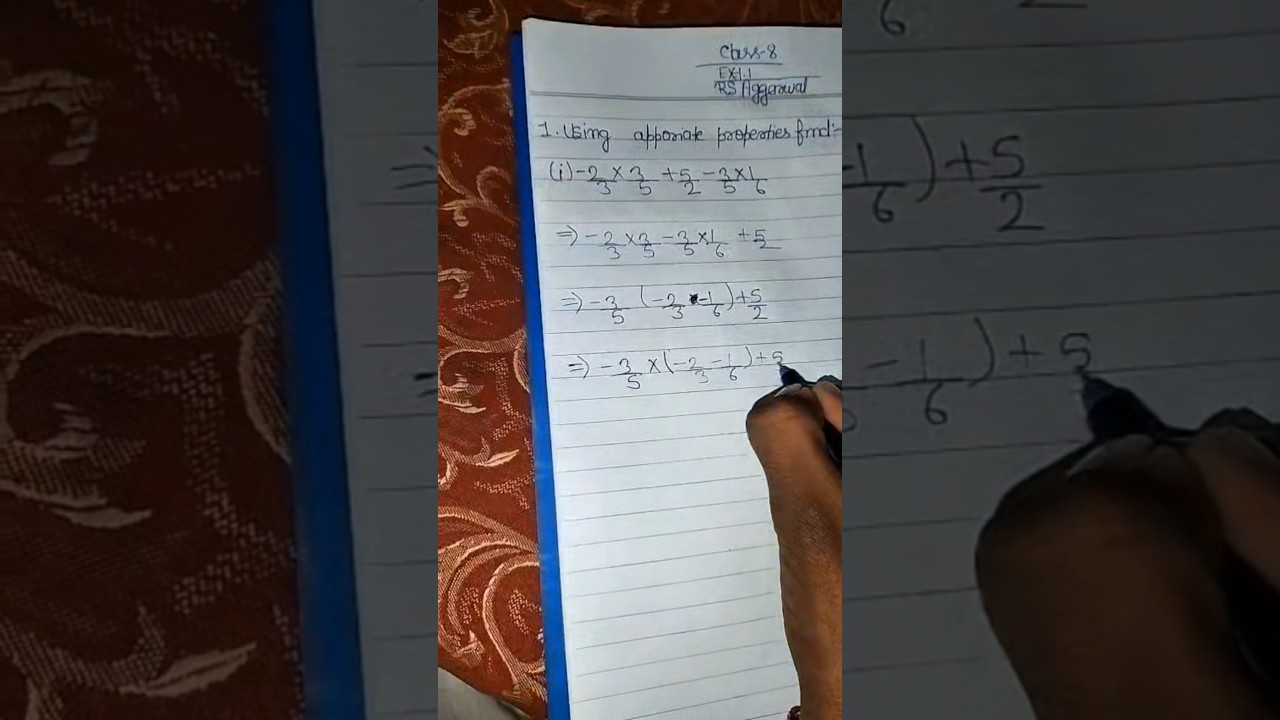 Class-8
EX-1.1
RS Aggerawal
1. Using apporiate properties find:-
(i) -2/3 × 3/5 + 5/2 - 3/5 × 1/6
⇒) -2/3 × 3/5 - 3/5 × 1/6 + 5/2
⇒) -3/5 (-2/3 - 1/6) + 5/2
⇒) -3/5 × (-2/3 - 1/6) + 5